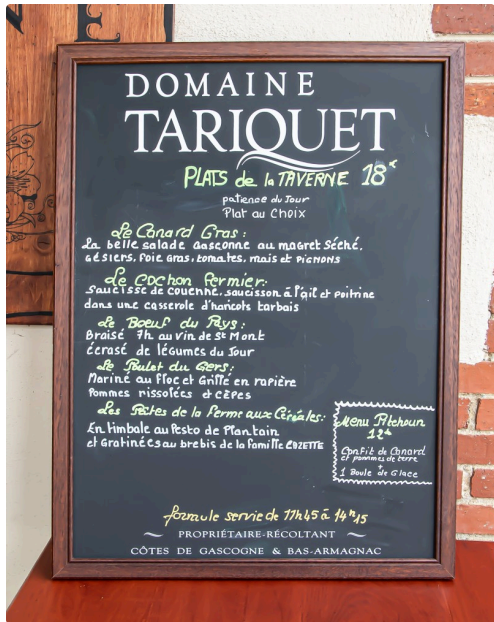 DOMAINE
TARIQUET
PLATS de la TAVERNE 18€
patience du Jour
Plat au Choix
Le Canard Gras :
La belle salade Gasconne au magret Séché,
GÉSIERS, foie gras, tomates, maïs et PIGNONS
Le Cochon fermier:
Saucisse de couenne, saucisson à l'ail et poitrine
dans une casserole d'haricots tarbais
Le Boeuf du Pays :
Braisé 7h au vin de St Mont
écrasé de légumes du Jour
Le Poulet du Gers :
Mariné au floc et Grillé en rapière
Pommes rissolées et CÈPES
Les Pâtes de la Ferme aux Céréales:
En timbale au Pesto de Plantain
et Gratinées au brebis de la famille COZETTE
Menu Pitchoun
12€
Confit de Canard
et pommes de terre
+
1 Boule de Glace
formule servie de 11h45 à 14h15
PROPRIÉTAIRE-RÉCOLTANT
CÔTES DE GASCOGNE & BAS-ARMAGNAC